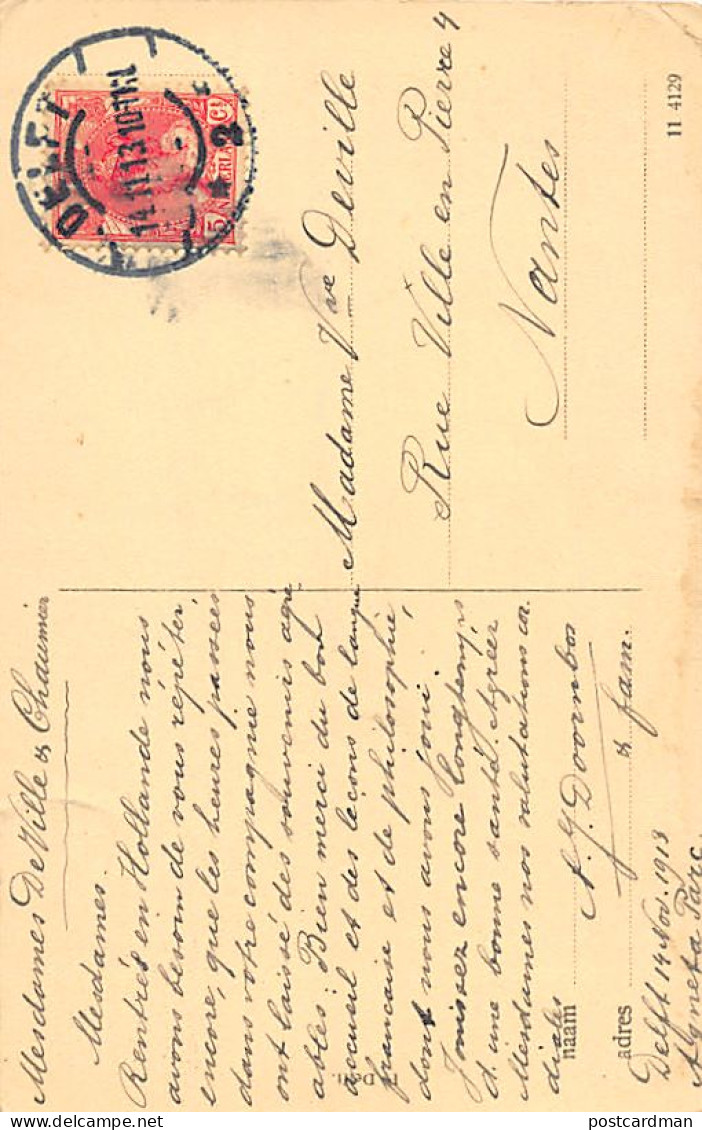 Mesdames DeVille & Chaumier
Mesdames.
Rentrés en Hollande nous
avons besoin de vous répéter,
encore, que les heures passées
dans votre compagnie nous
ont laissé des souvenirs agré
ables. Bien merci du bon
accueil et des leçons de langue
française et de philosophie,
dont nous avons joui.
Jouissez encore longtemps
d'une bonne santé. Agréer
Mesdames nos salutations cor
diales
A. J. Doornbos
& fam.
naam
adres
Delft 14 Nov. 1913
Agneta Parc.
DELFT
14.11.13 10-11V.
* 2 *
5 NEDERLAND Ct
Madame Vve Deville
Rue Ville en Pierre 4
Nantes
11 4129
postcardman